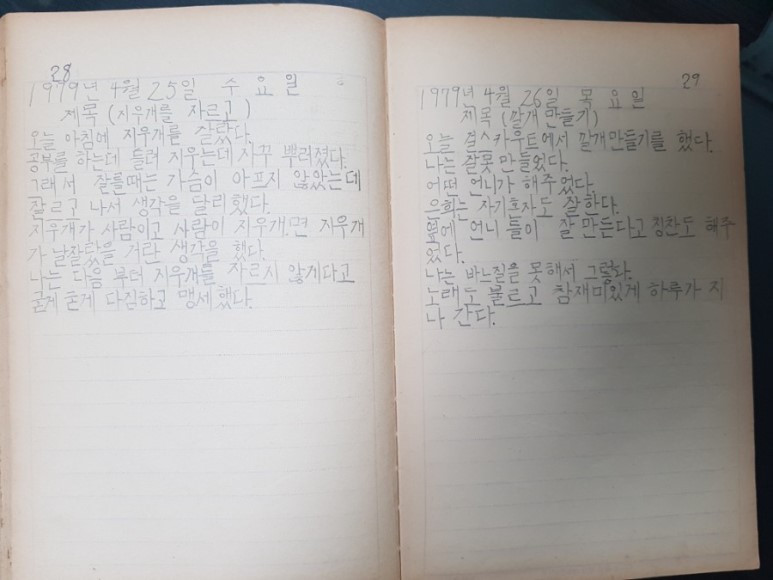 28
1979년 4월 25일 수요일
제목 (지우개를 자르고)
오늘 아침에 지우개를 잘랐다.
공부를 하는데 틀려 지우는데 자꾸 뿌러졌다.
그래서 잘를때는 가슴이 아프지 않았는데
잘르고 나서 생각을 달리했다.
지우개가 사람이고 사람이 지우개.면 지우개
가 날잘랐을 거란 생각을 했다.
나는 다음 부터 지우개를 자르지 않게다고
굳게 굳게 다짐하고 맹세했다.
29
1979년 4월 26일 목요일
제목 (깔개 만들기)
오늘 걸스카우트에서 깔개만들기를 했다.
나는 잘못 만들었다.
어떤 언니가 해주었다.
은희는 자기혼자도 잘한다.
옆에 언니들이 잘 만든다고 칭찬도 해주
었다.
나는 바느질을 못해서 그렇다.
노래도 불르고 참재미있게 하루가 지
나 간다.